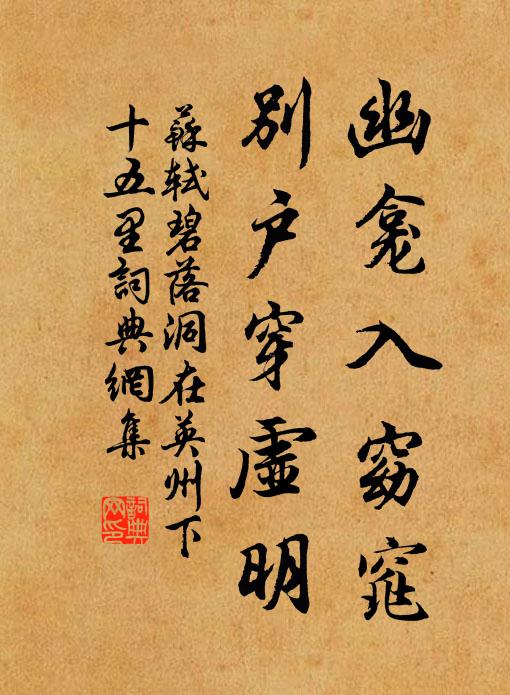 幽龛入窈窕
別户穿虛明
蘇軾碧落洞在英州下
十五里詞典網集
詞典網印